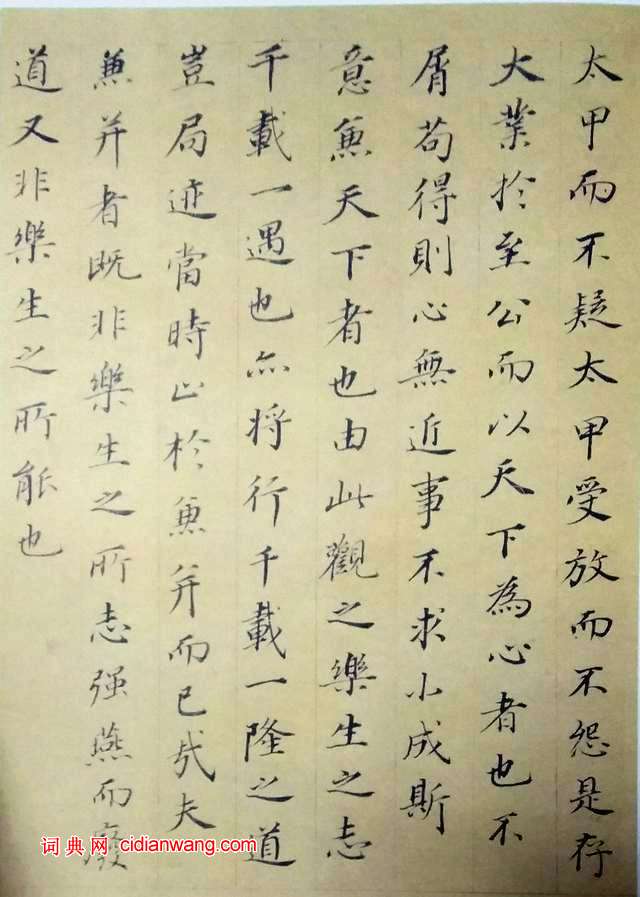 太甲而不疑太甲受放而不怨是存
大業於至公而以天下為心者也不
屑苟得則心無近事不求小成斯
意兼天下者也由此觀之樂生之志
千載一遇也亦将行千載一隆之道
豈局迹當時止於兼并而已哉夫
兼并者既非樂生之所志强燕而廢
道又非樂生之所能也
词典网 cidianwang.com